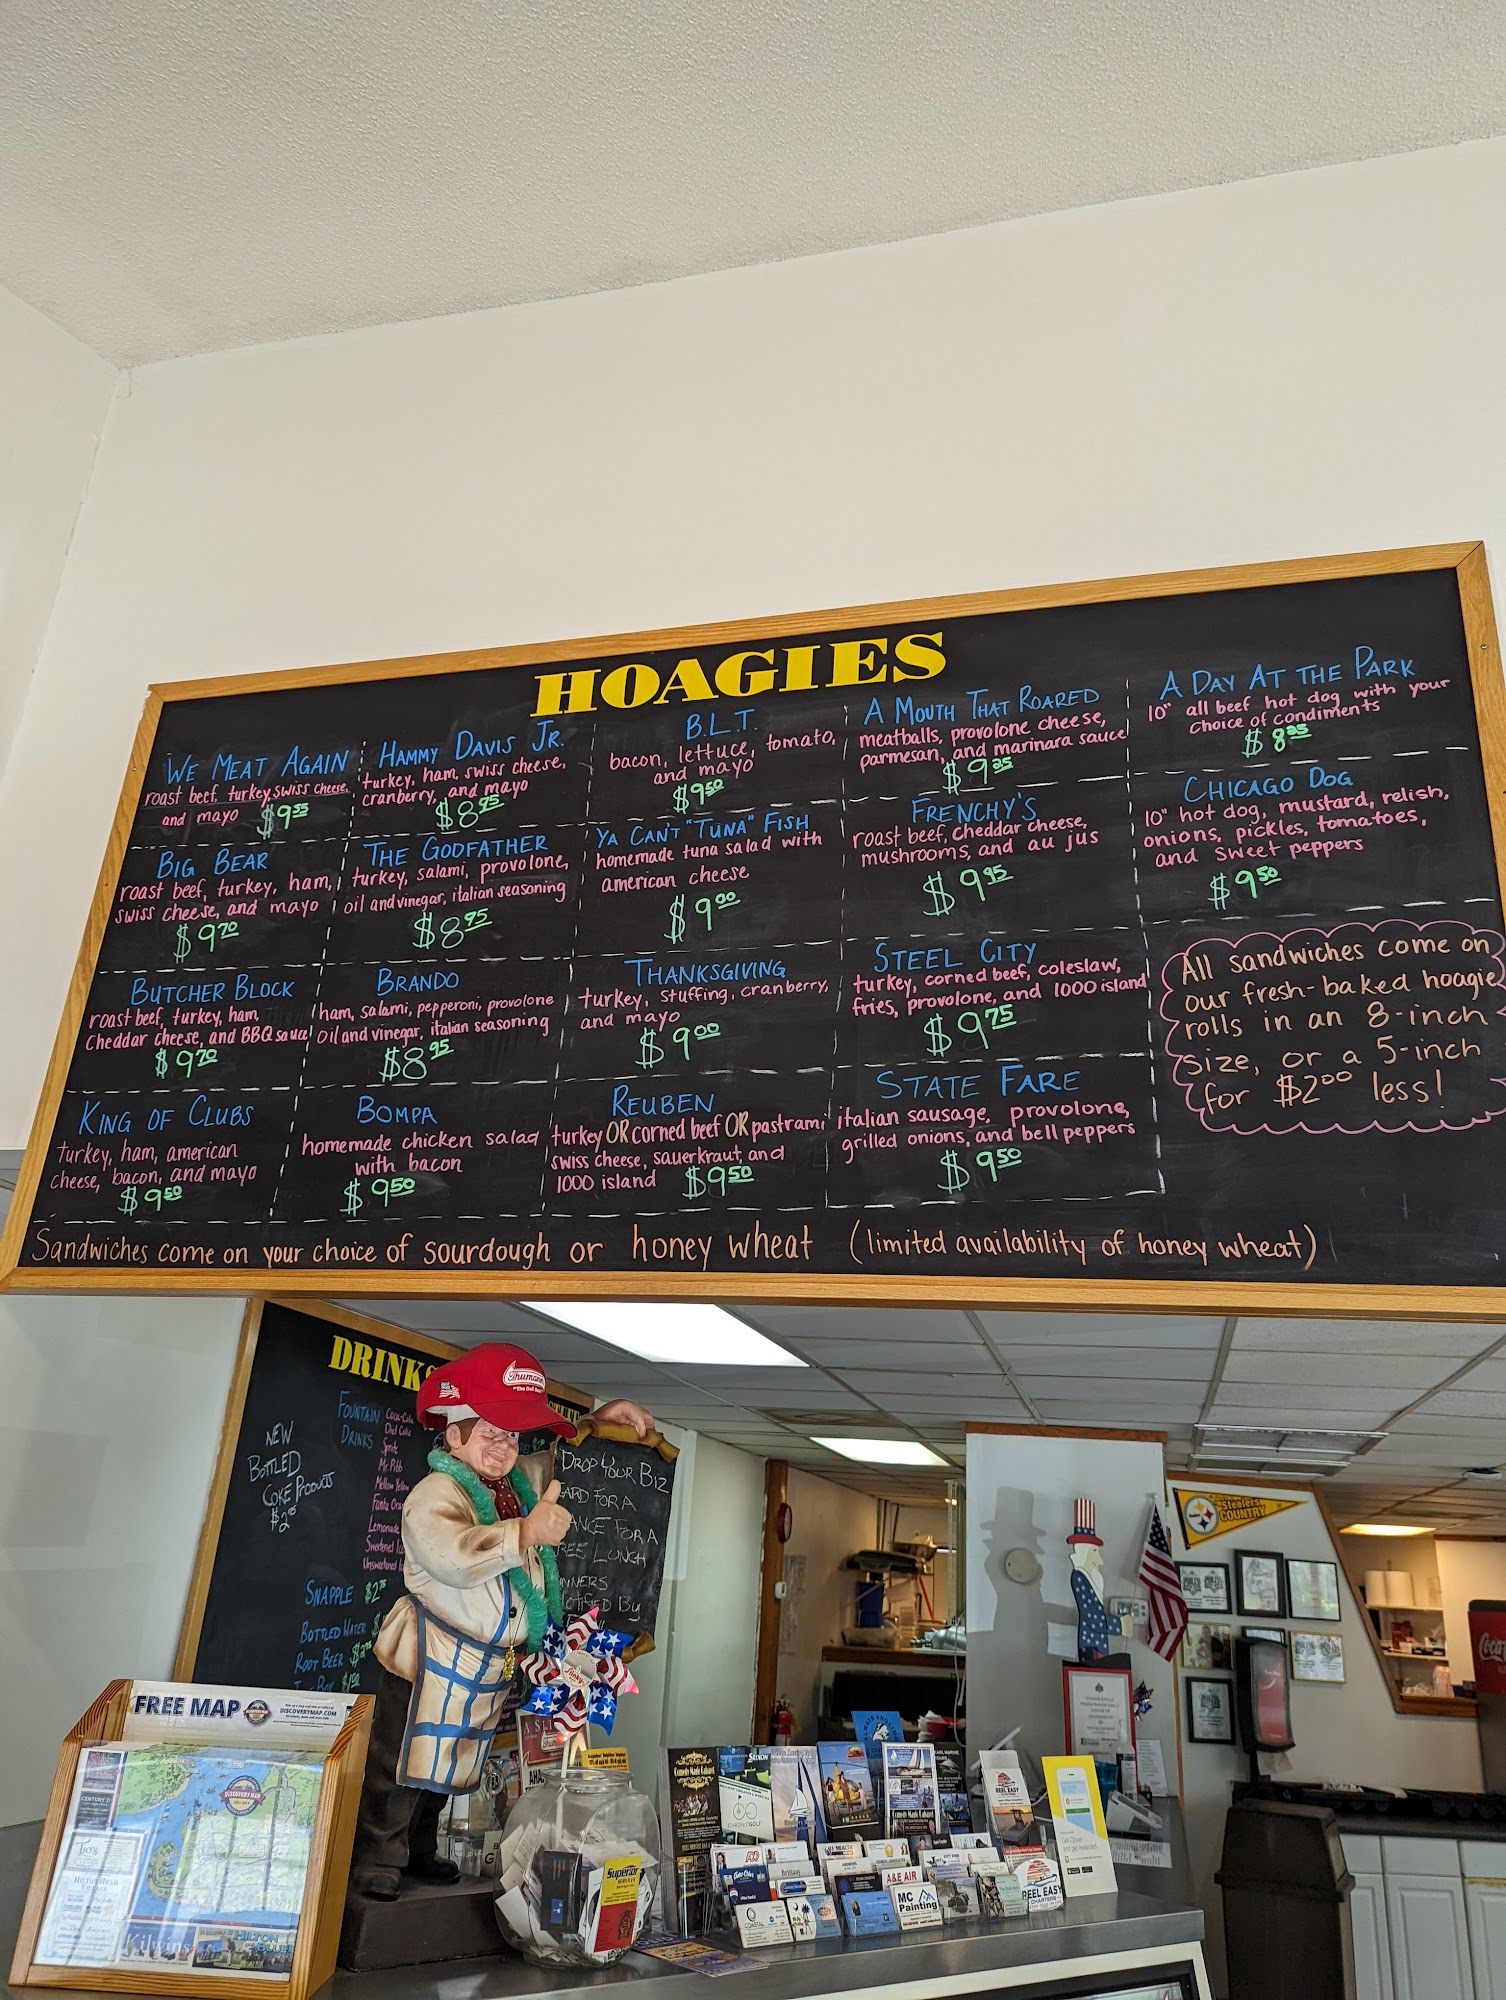 HOAGIES
WE MEAT AGAIN
roast beef, turkey, swiss cheese,
and mayo $9.55
BIG BEAR
roast beef, turkey, ham,
swiss cheese, and mayo
$9.70
BUTCHER BLOCK
roast beef, turkey, ham,
cheddar cheese, and BBQ sauce
$9.70
KING OF CLUBS
turkey, ham, american
cheese, bacon, and mayo
$9.50
HAMMY DAVIS JR.
turkey, ham, swiss cheese,
cranberry, and mayo
$8.95
THE GODFATHER
turkey, salami, provolone,
oil and vinegar, italian seasoning
$8.95
BRANDO
ham, salami, pepperoni, provolone
oil and vinegar, italian seasoning
$8.95
BOMPA
homemade chicken salad
with bacon
$9.50
B.L.T.
bacon, lettuce, tomato,
and mayo
$9.50
YA CAN'T "TUNA" FISH
homemade tuna salad with
american cheese
$9.00
THANKSGIVING
turkey, stuffing, cranberry,
and mayo
$9.00
REUBEN
turkey OR corned beef OR pastrami
swiss cheese, sauerkraut, and
1000 island $9.50
A MOUTH THAT ROARED
meatballs, provolone cheese,
parmesan, and marinara sauce
$9.25
FRENCHY'S
roast beef, cheddar cheese,
mushrooms, and au jus
$9.95
STEEL CITY
turkey, corned beef, coleslaw,
fries, provolone, and 1000 island
$9.75
STATE FARE
italian sausage, provolone,
grilled onions, and bell peppers
$9.50
A DAY AT THE PARK
10" all beef hot dog with your
choice of condiments
$8.25
CHICAGO DOG
10" hot dog, mustard, relish,
onions, pickles, tomatoes,
and sweet peppers
$9.50
All sandwiches come on
our fresh-baked hoagie
rolls in an 8-inch
size, or a 5-inch
for $2.00 less!
Sandwiches come on your choice of sourdough or honey wheat (limited availability of honey wheat)
DRINKS
NEW
BOTTLED
COKE PRODUCTS
FOUNTAIN
DRINKS
Coca-Cola
Diet Coke
Sprite
Mr. Pibb
Mellow Yellow
Lemonade
SNAPPLE
BOTTLED WATER
ROOT BEER
DROP YOUR BIZ
FOR A
FOR A
LUNCH
BY
Steelers
COUNTRY
FREE MAP
DISCOVERYMAP.COM
CENTURY 21
Kilwins
HILTON
Superior
SERVICES
CHRONICGOLF
A&E AIR
MC
Painting
REEL EASY
REEL EASY
CHARTERS
COASTAL